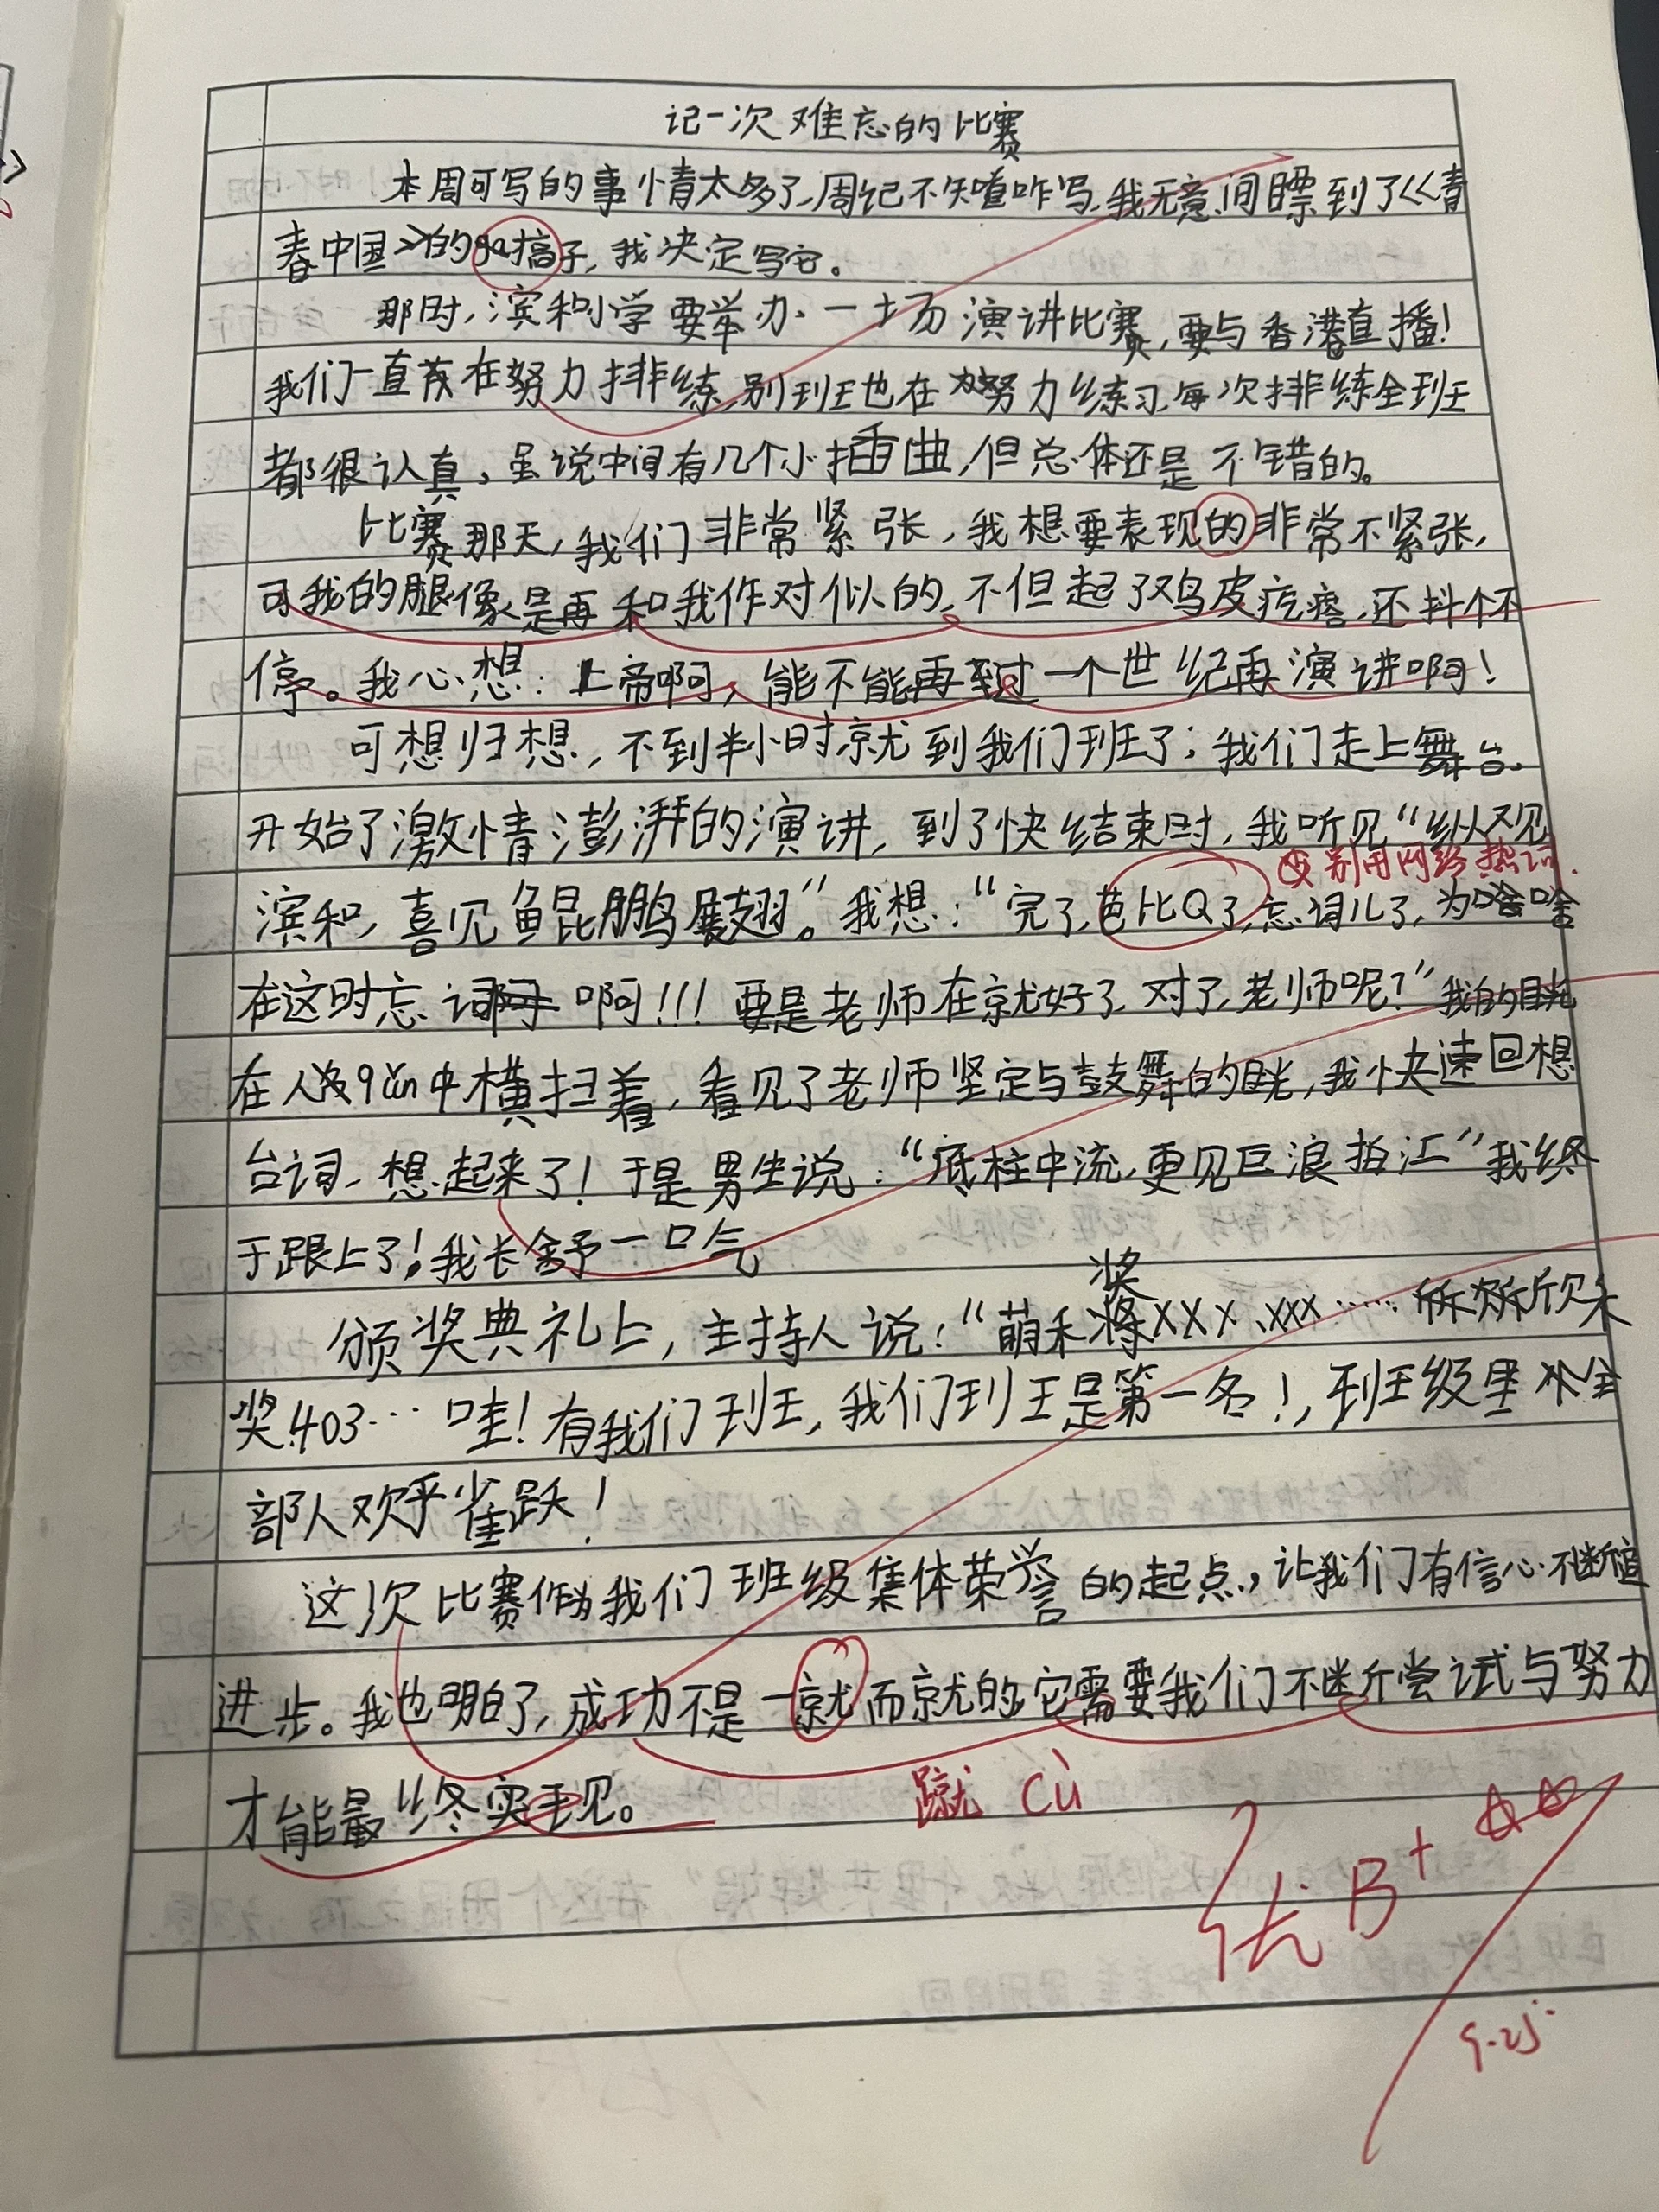 记一次难忘的比赛
本周可写的事情太多了,周记不知道咋写,我无意间瞟到了《青
春中国》的ga搞子,我决定写它。
那时,滨和小学要举办一场演讲比赛,要与香港直播!
我们一直在努力排练,别班也在努力练习,每次排练全班
都很认真,虽说中间有几个小插曲,但总体还是不错的。
比赛那天,我们非常紧张,我想要表现的非常不紧张,
可我的腿像是再和我作对似的,不但起了鸡皮疙瘩,还抖个不
停。我心想:上帝啊,能不能再过一个世纪再演讲啊!
可想归想,不到半小时就到我们班了;我们走上舞台
开始了激情澎湃的演讲,到了快结束时,我听见“纵观
别用网络热词.
滨和,喜见鲲鹏展翅。”我想:“完了,芭比Q了,忘词儿了,为啥
在这时忘词啊!!!要是老师在就好了,对了,老师呢?”我的目光
在人qún中横扫着,看见了老师坚定与鼓舞的目光,我快速回想
台词,想起来了!于是男生说:“底柱中流,更见巨浪拍江”我终
于跟上了!我长舒一口气
颁奖典礼上,主持人说:“萌禾奖XXX、XXX……欣禾
奖403…哇!有我们班,我们班是第一名!,班级里全
部人欢乎雀跃!
这次比赛作为我们班级集体荣誉的起点,让我们有信心不断
进步。我也明白了,成功不是一就而就的,它需要我们不断尝试与努力
才能最终实现。
蹴 cù
优 B+
9.25